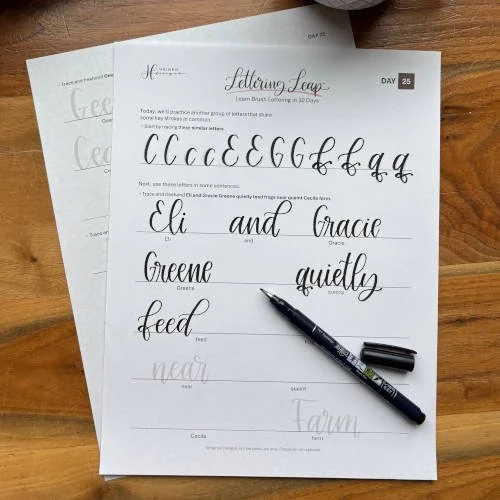 DAY 25
Lettering Leap
DAY 25
Learn Brush Lettering in 30 Days
Today, we'll practice another group of letters that share
some key strokes in common.
Start by tracing these similar letters.
C C c c E E G G f f q q
Next, use these letters in some sentences.
Trace and freehand Eli and Gracie Greene quietly feed frogs near quaint Cecila farm.
Eli and Gracie
Eli and Gracie
Greene quietly
Greene quietly
feed
feed
near
near quaint
Farm
Cecila farm
Trace and freehand
Gree
Cec